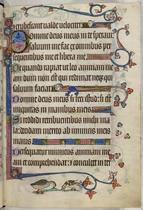 erubescant valde velociter
Domine deus meus in te speraui:
saluum me fac ex omnibus per
sequentibus me et libera me
Ne quando rapiat ut leo animam
dum non est qui redimat neq; qui
saluum faciat
Domine deus meus si feci istud: si est
iniquitas in manibus meis
Si reddidi retribuentibus michi ma
la: decidam merito ab inimicis meis
inanis
Persequatur inimicus animam me
am et comprehendat: et conculcet in ter